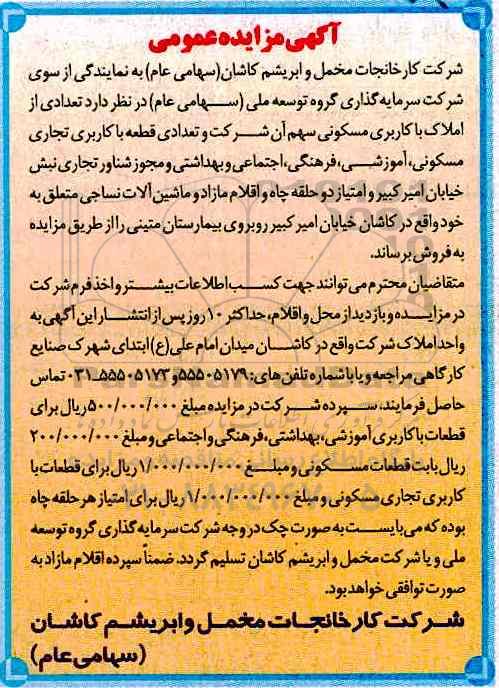 آگهی مزایده عمومی
شرکت کارخانجات مخمل و ابریشم کاشان(سهامی عام) به نمایندگی از سوی
شرکت سرمایه گذاری گروه توسعه ملی (سهامی عام) در نظر دارد تعدادی از
املاک با کاربری مسکونی سهم آن شرکت و تعدادی قطعه با کاربری تجاری
مسکونی، آموزشی، فرهنگی، اجتماعی و بهداشتی و مجوز شناور تجاری نبش
خیابان امیر کبیر و امتیاز دو حلقه چاه و اقلام مازاد و ماشین آلات نساجی متعلق به
خود واقع در کاشان خیابان امیر کبیر روبروی بیمارستان متینی را از طریق مزایده
به فروش برساند.
متقاضیان محترم می توانند جهت کسب اطلاعات بیشتر و اخذ فرم شرکت
در مزایده و بازدید از محل و اقلام، حداکثر ۱۰ روز پس از انتشار این آگهی به
واحد املاک شرکت واقع در کاشان میدان امام علی(ع) ابتدای شهرک صنایع
کارگاهی مراجعه و یا با شماره تلفن های: ۵۵۵۰۵۱۷۹ و ۵۵۵۰۵۱۷۳-۰۳۱ تماس
حاصل فرمایند، سپرده شرکت در مزایده مبلغ ۵۰۰/۰۰۰/۰۰۰ ریال برای
قطعات با کاربری آموزشی، بهداشتی، فرهنگی و اجتماعی و مبلغ ۲۰۰/۰۰۰/۰۰۰
ریال بابت قطعات مسکونی و مبلغ ۱/۰۰۰/۰۰۰/۰۰۰ ریال برای قطعات با
کاربری تجاری مسکونی و مبلغ ۱/۰۰۰/۰۰۰/۰۰۰ ریال برای امتیاز هر حلقه چاه
بوده که می بایست به صورت چک در وجه شرکت سرمایه گذاری گروه توسعه
ملی و یا شرکت مخمل و ابریشم کاشان تسلیم گردد. ضمناً سپرده اقلام مازاد به
صورت توافقی خواهد بود.
شرکت کارخانجات مخمل و ابریشم کاشان
(سهامی عام)